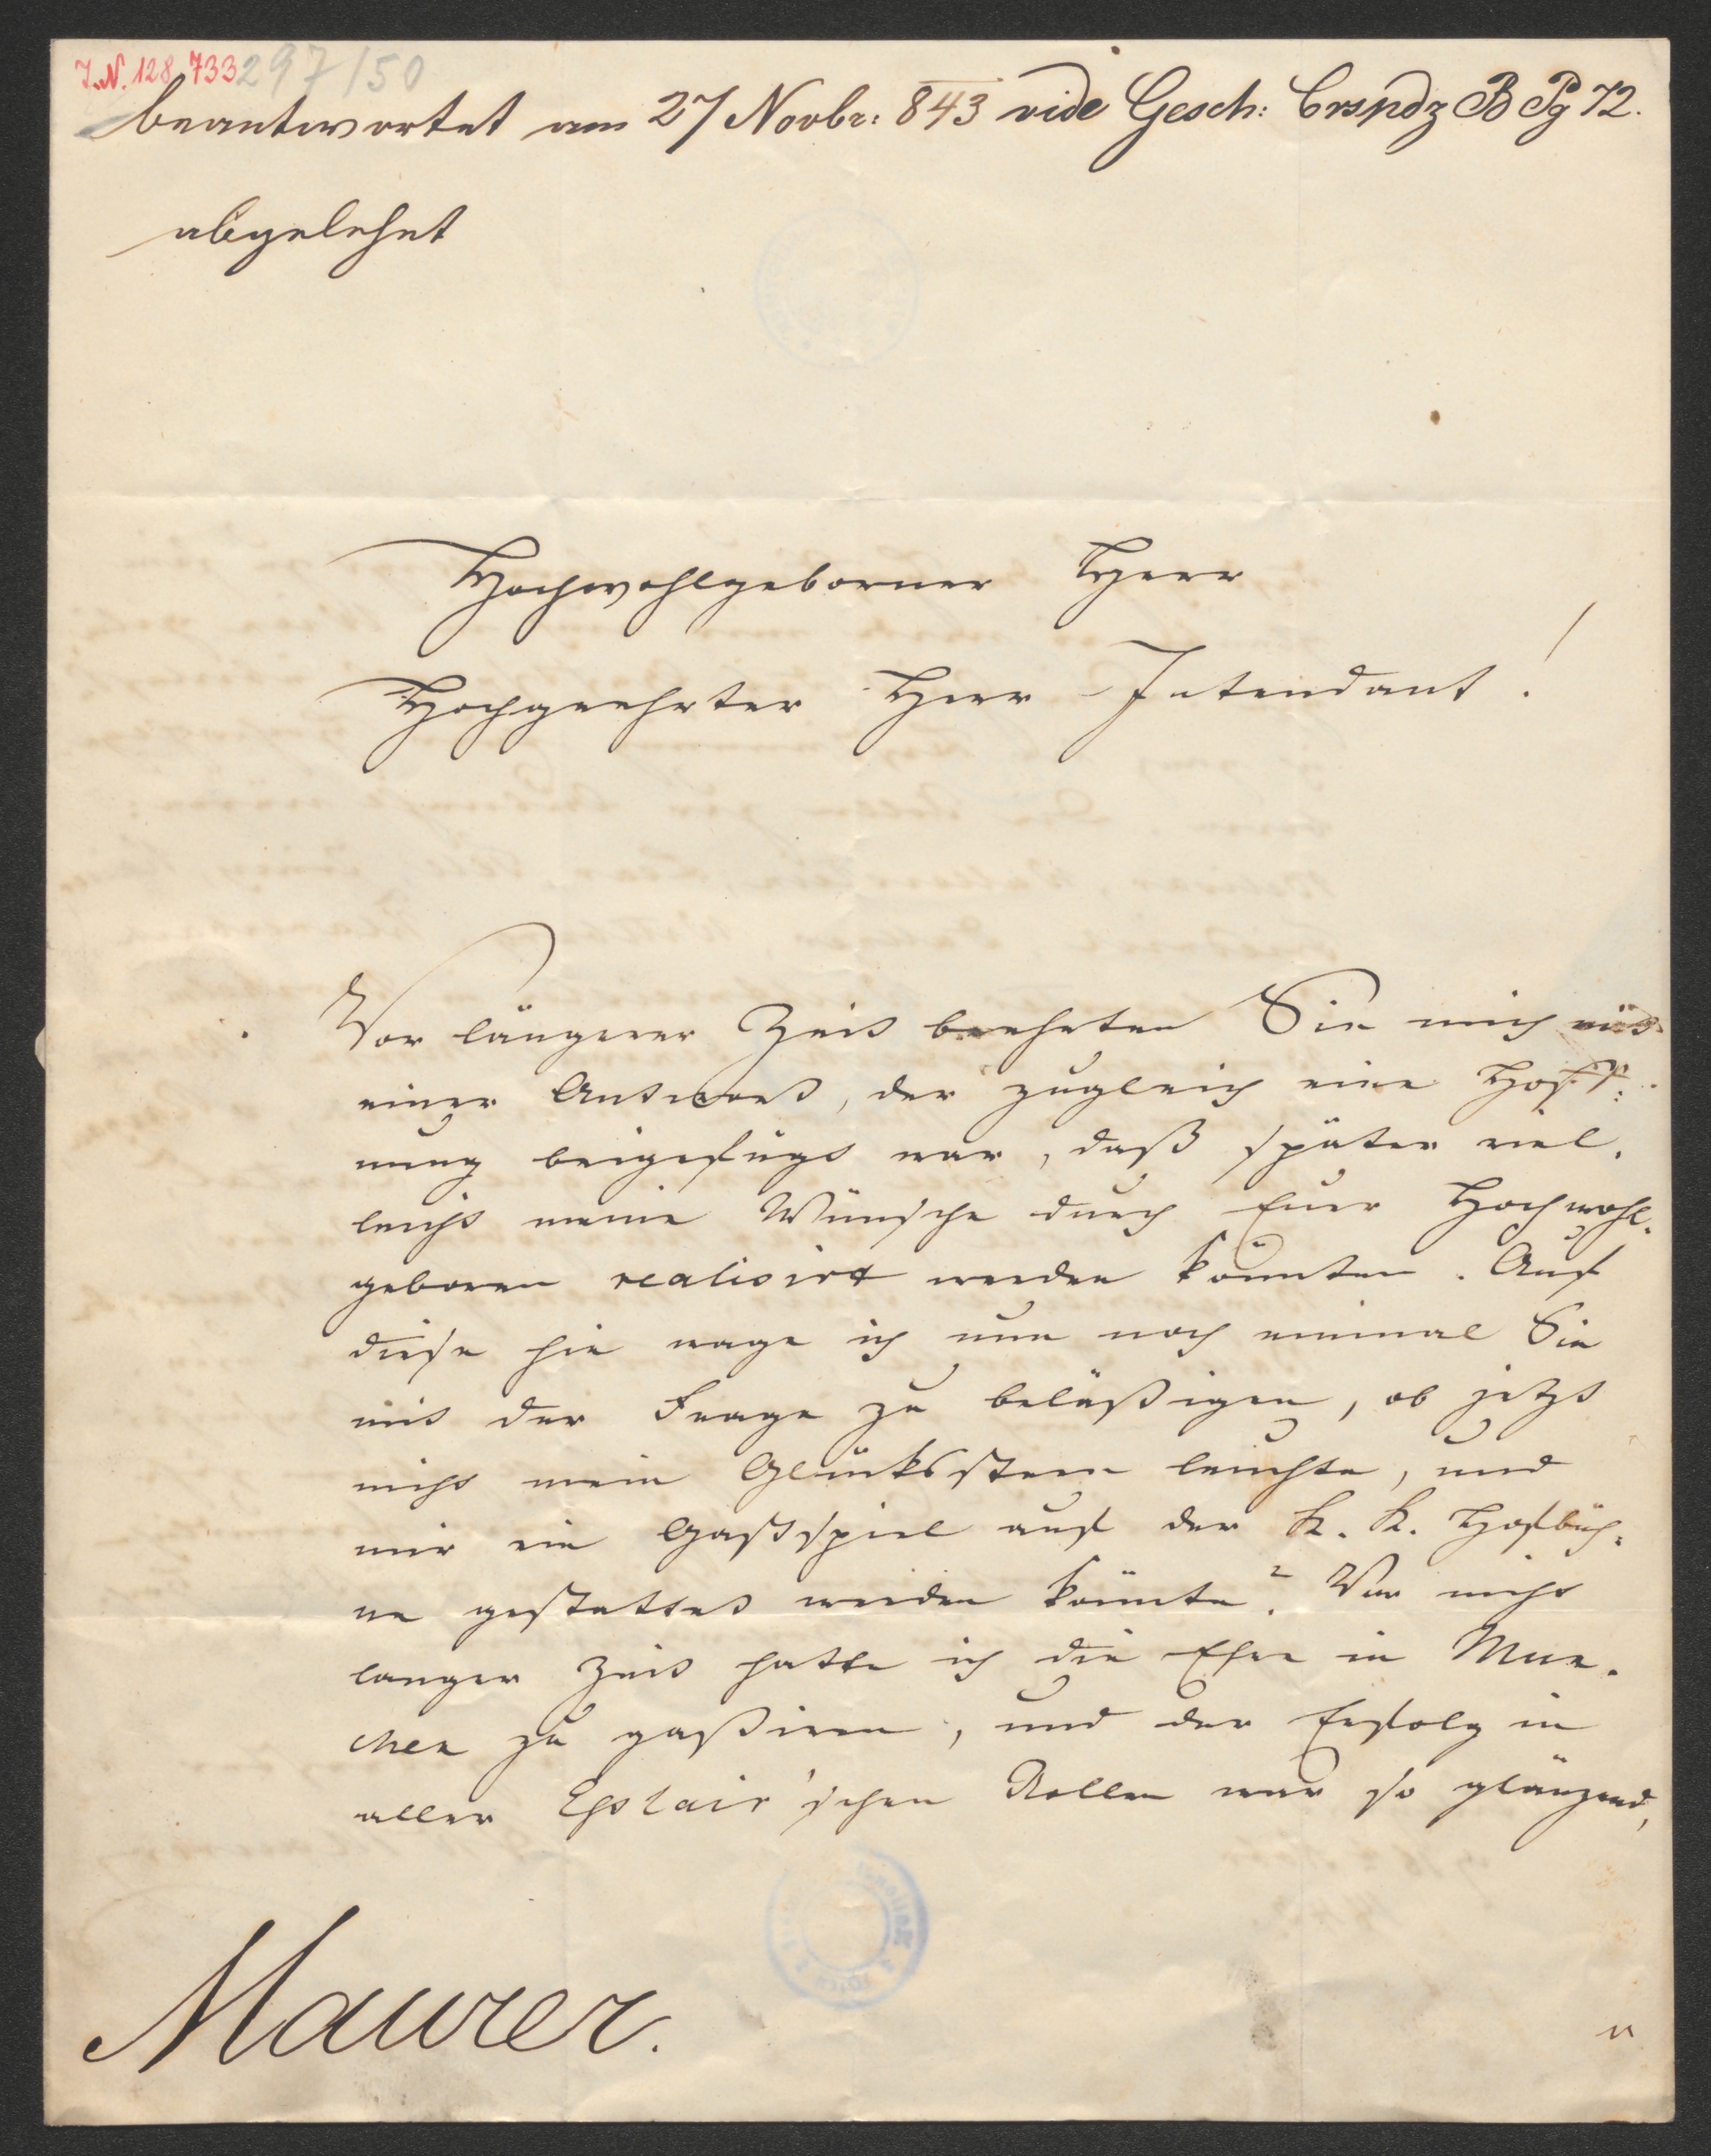 I.N. 128.733 297/50
beantwortet am 27 Novbr: 843 vide Gesch: Crspdz B Pg 72.
abgelehnt
Hochwohlgeborner Herr
Hochgeehrter Herr Intendant!
Vor längerer Zeit beehrten Sie mich mit
einer Antwort, der zugleich eine Hoff:
nung beigefügt war, daß später viel.
leicht meine Wünsche durch Euer Hochwohl.
geboren realisirt werden könnten. Auf
diese hin wage ich nun noch einmal Sie
mit der Frage zu beläßigen, ob jetzt
nicht mein Glücksstern leuchte, und
mir ein Gastspiel auf der K. K. Hofbüh.
ne gestattet werden könnte? Vor nicht
langer Zeit hatte ich die Ehre in Mün.
chen zu gastiren, und der Erfolg in
aller Esslair'schen Rollen war so glänzend,
Maurer.